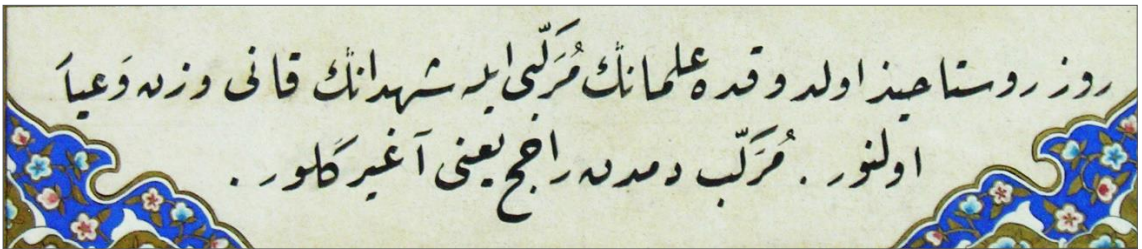 روز روستاحیز اولدوقده علمانڭ مُرَكّبى ایله شهدانڭ قانى وزن وَعیاَ
اولنور . مُرَكّب دمدن راجح یعنى آغیر كلور .